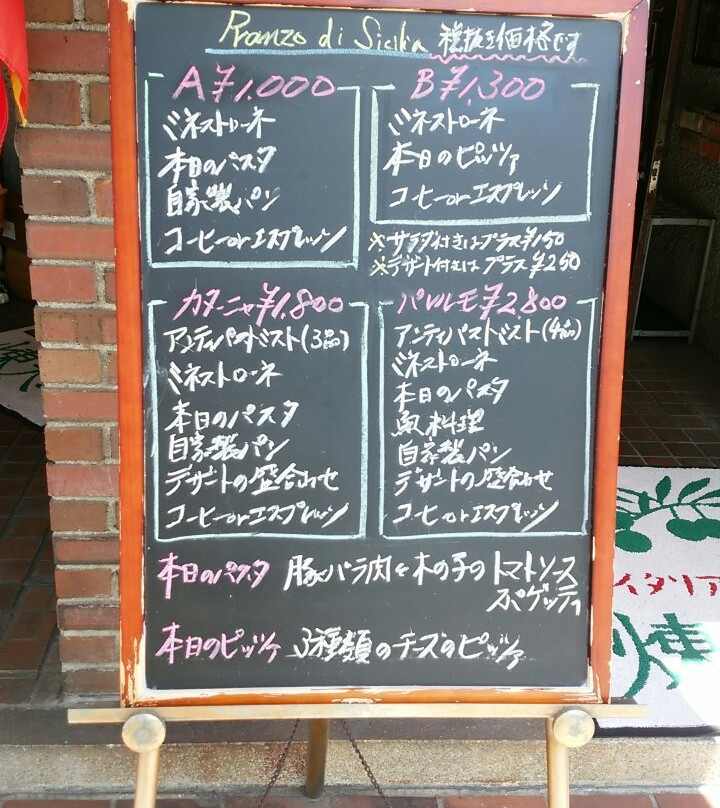 Pranzo di Sicilia 税抜き価格です
A ¥1,000
ミネストローネ
本日のパスタ
自家製パン
コーヒーorエスプレッソ
B ¥1,300
ミネストローネ
本日のピッツァ
コーヒーorエスプレッソ
※サラダ付きはプラス¥150
※デザート付きはプラス¥250
カターニャ¥1,800
アンティパストミスト(3品)
ミネストローネ
本日のパスタ
自家製パン
デザートの盛合わせ
コーヒーorエスプレッソ
パレルモ¥2,800
アンティパストミスト(4品)
ミネストローネ
本日のパスタ
魚料理
自家製パン
デザートの盛合わせ
コーヒーorエスプレッソ
本日のパスタ 豚バラ肉と木の子のトマトソース
スパゲッティ
本日のピッツァ 3種類のチーズのピッツァ
イタリア